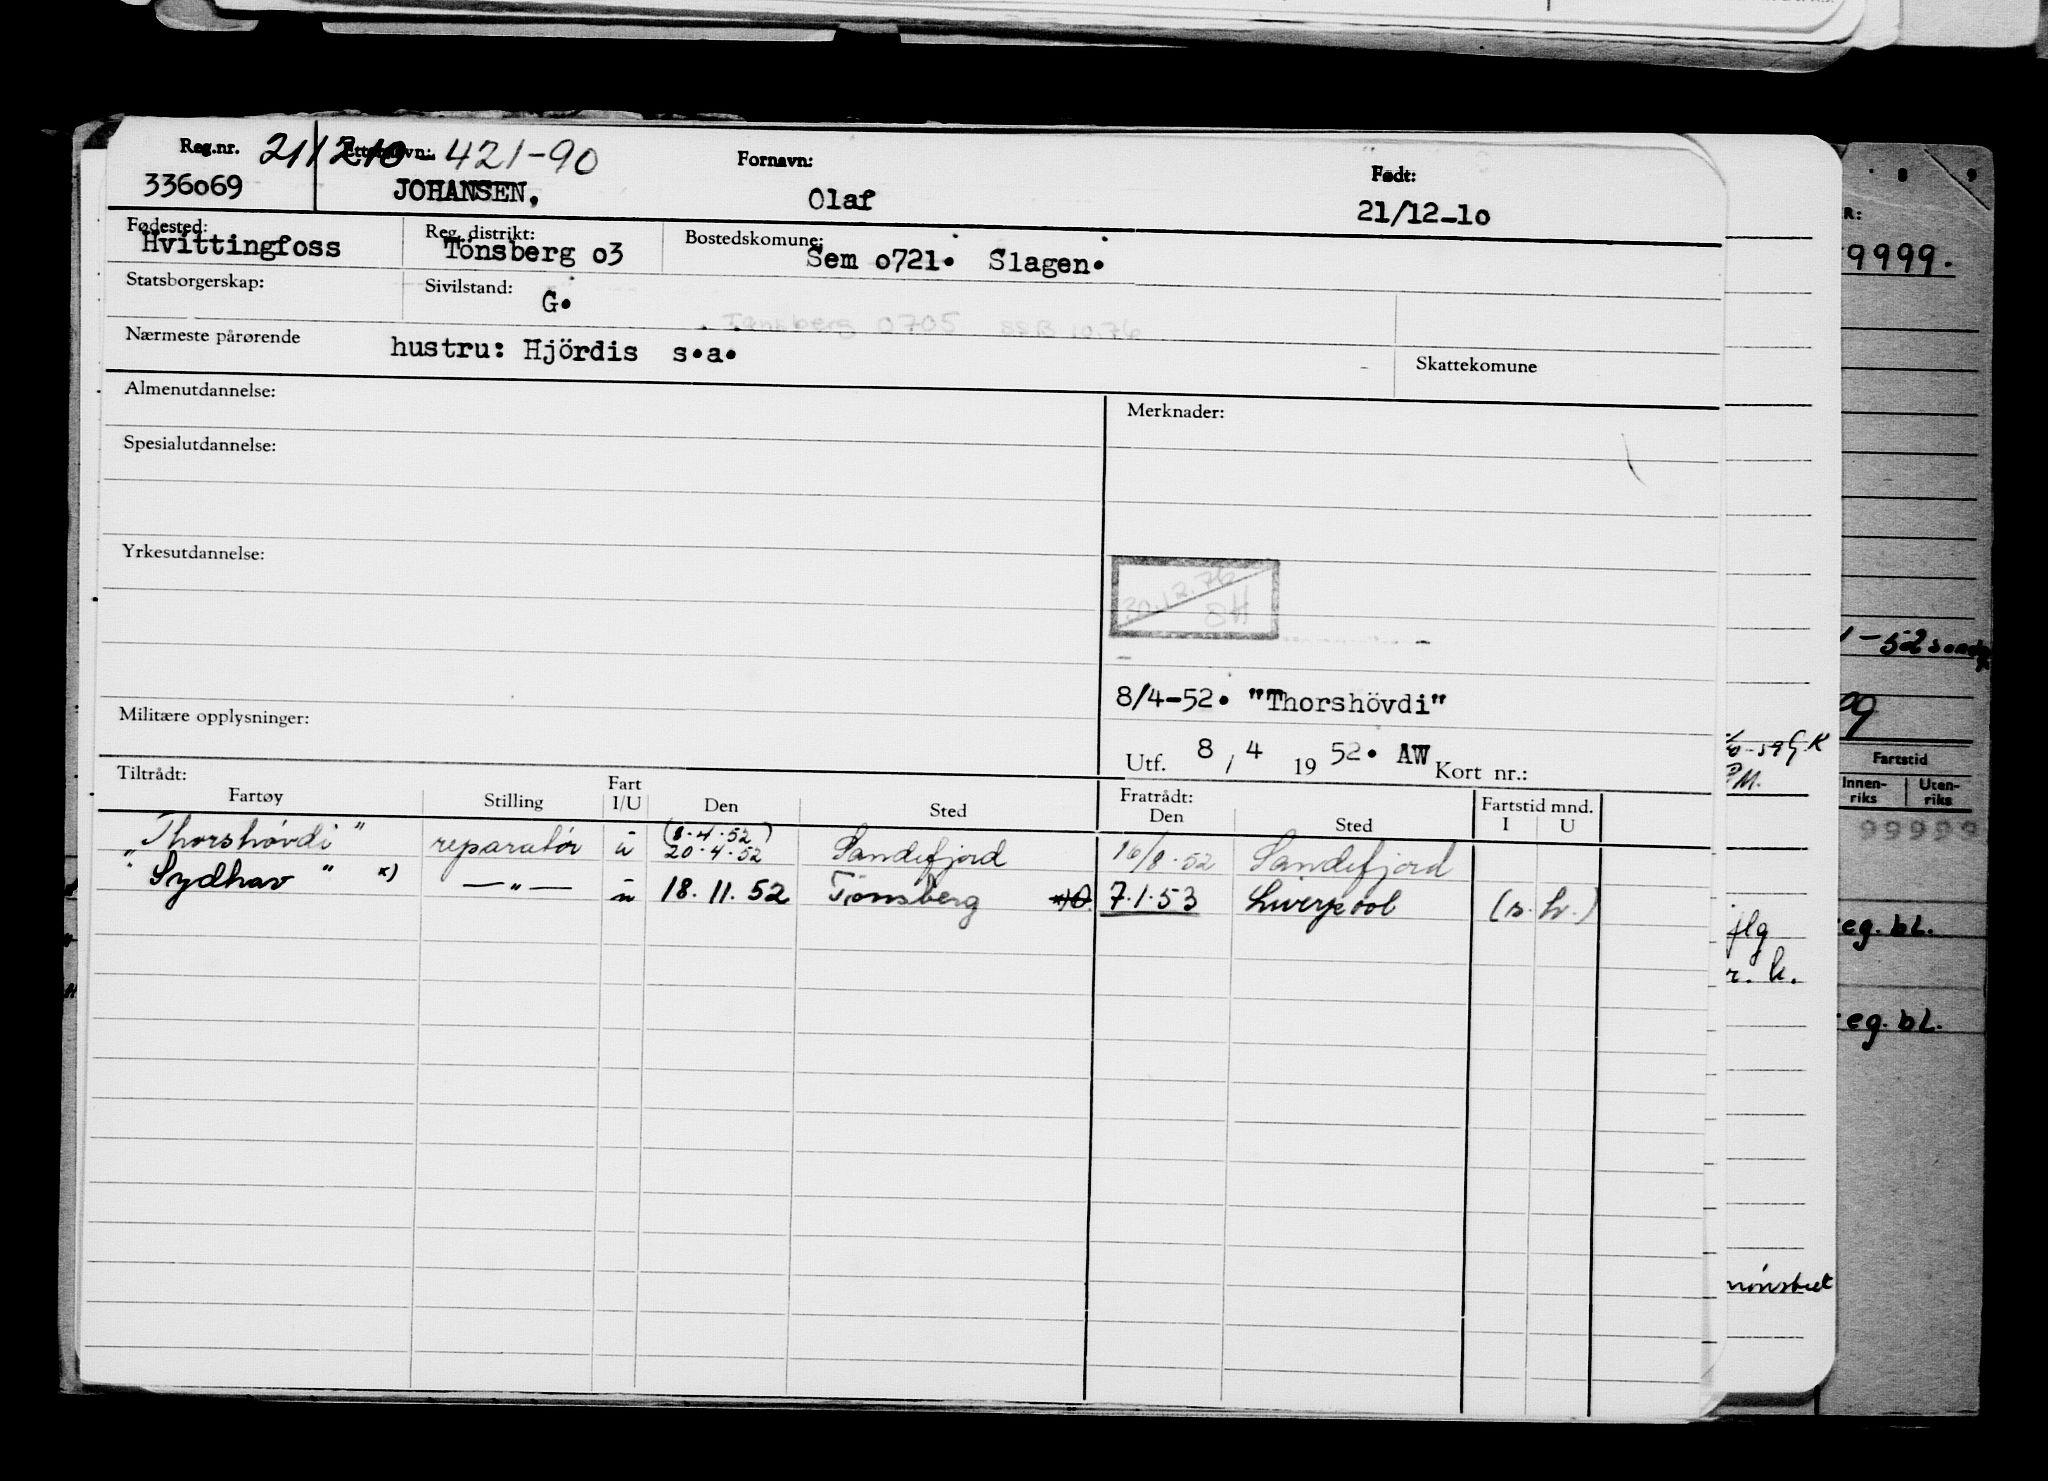 Reg.nr. 21/210-421-90 Etternavn: Fornavn: Født:
336o69 JOHANSEN. Olaf 21/12-1o
Fødested: Reg. distrikt: Bostedskomune:
Hvittingfoss Tönsberg o3 Sem o721. Slagen.
Statsborgerskap: Sivilstand: G.
Tønsberg 0705 SSB 10.76
Nærmeste pårørende hustru: Hjördis s.a. Skattekomune
Almenutdannelse: Merknader:
Spesialutdannelse:
Yrkesutdannelse:
30.12.76
8/4-52. "Thorshövdi"
Militære opplysninger:
Utf. 8 / 4 19 52. AW Kort nr.:
Tiltrådt: Fratrådt:
Fartøy Stilling Fart I/U Den Sted Den Sted Fartstid mnd. I U
"Thorshövdi" reparatör u (8.4.52) 20.4.52 Sandefjord 16/8.52 Sandefjord
"Sydhav" x) —"— u 18.11.52 Tönsberg 7.1.53 Liverpool (s.h.)
R:
9999.
-52
09
-59 G.K
M.
Fartstid
Innen-riks Uten-riks
99999
flg
eg. bl.
r. k.
eg. bl.
mönstret